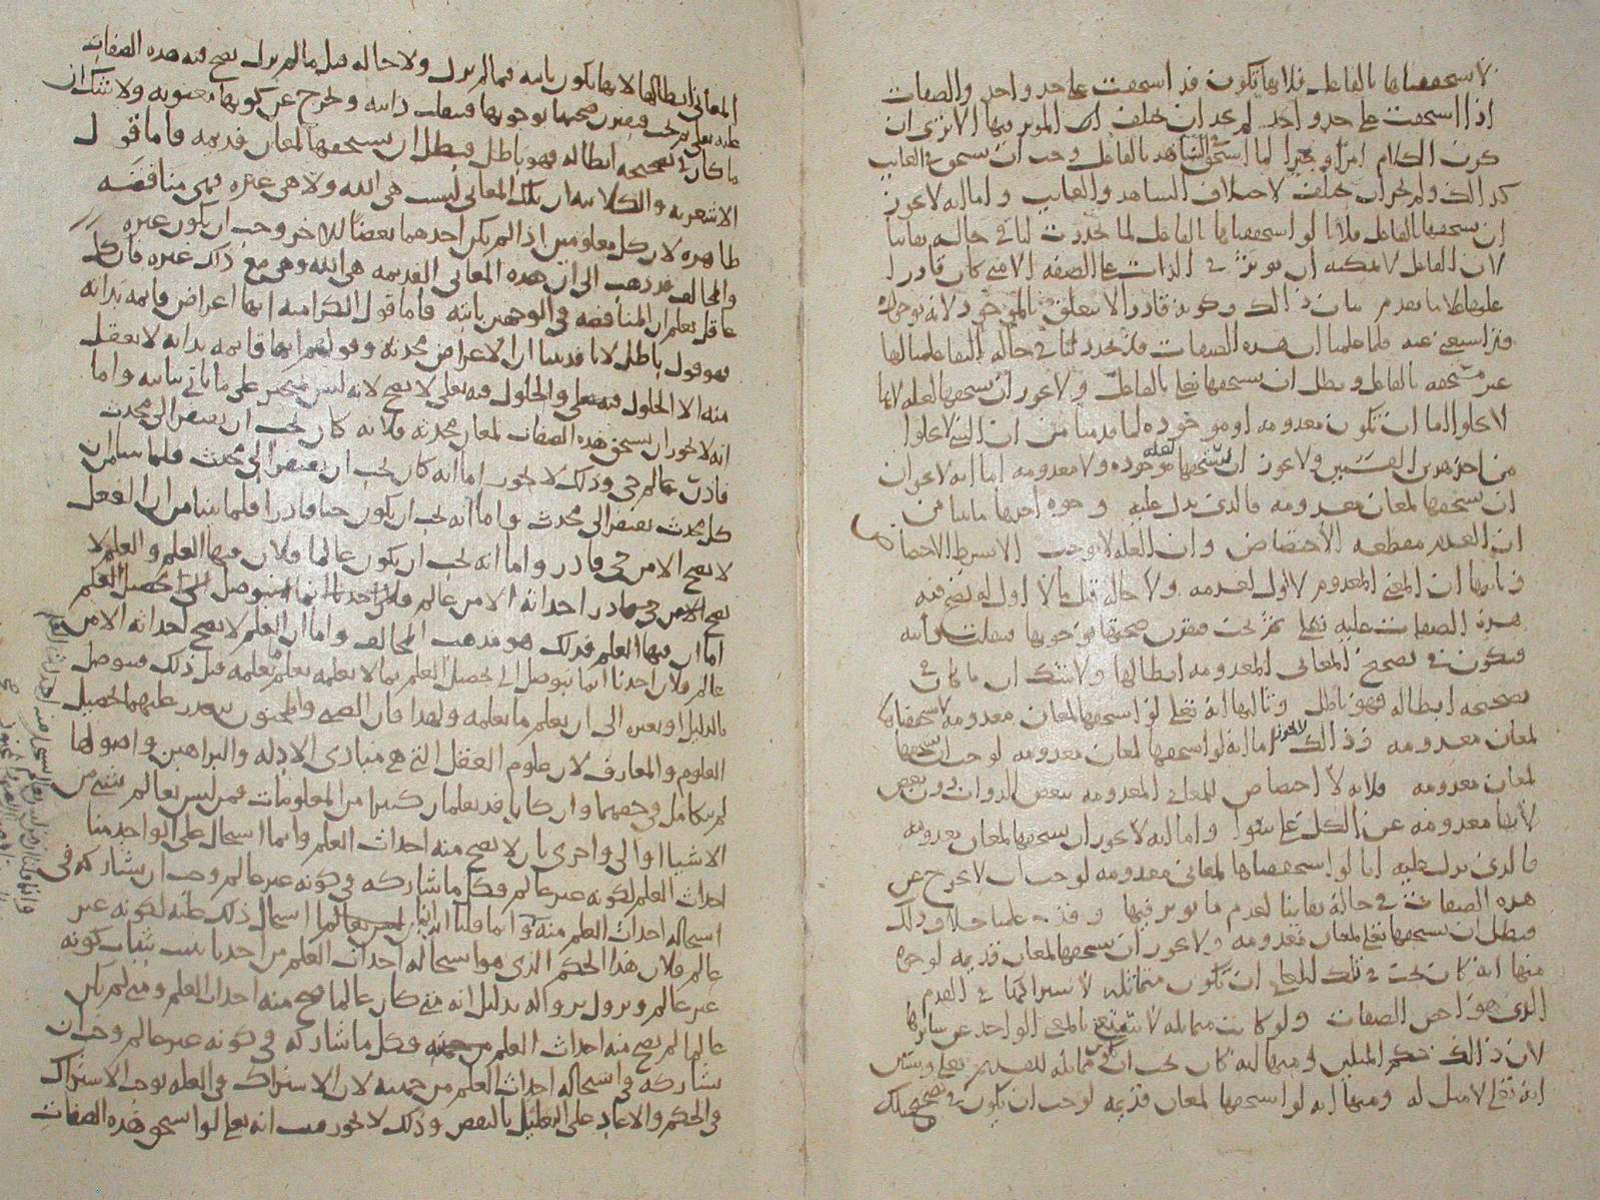 لا ستحقها بالفاعل فلانها تكون قد استحقت على حد واحد والصفات
اذا استحقت على حد واحد لم يجز ان يختلف المؤثر فيها الا ترى ان
كون الكلام امرا او خبرا لما استحق في الشاهد بالفاعل وجب ان يستحق في الغايب
كذلك ولم يجز ان يختلف لاختلاف الشاهد والغايب واما انه لا يجوز
ان يستحقها بالفاعل فلانا لو استحقيناها بالفاعل لما تجددت لنا في حالة بقاينا
لان الفاعل لا يمكنه ان يوثر في الذات على الصفة الا متى كان قادرا
عليها لما تقدم بيان ذلك وكونه قادرا لا يتعلق بالموجود لانه بوجوده
قد استغنى عنه فلما علمنا ان هذه الصفات قد تجدد لنا في حالة البقا علمنا انها
غير مستحقه بالفاعل وبطل ان يستحقها تعالى بالفاعل ولا يجوز ان يستحقها لعله لانها
لا تخلوا اما ان تكون معدومه او موجوده لما قدمنا من ان الشي لا يخلوا
من احد هذين القسمين ولا يجوز ان يستحقها لعله موجوده ولا معدومه اما انه لا يجوز ان
ان يستحقها لمعان معدومه فالذي يدل عليه وجوه احدها ما بينا من
ان العدم مقطعه الاختصاص وان العلة لا توجب الا بشرط الاختصاص
وثانيها ان المعنى المعدوم لا اول لعدمه ولا حالة قبل ما لا اول له يصح فيه
هذه الصفات عليه تعالى ثم تجب فتقترن صحتها بوجوبها فتثبت ذاتيه
فيكون في تصحيح المعاني المعدومه ابطالها ولا شك ان ما كان في
تصحيحه ابطاله فهو باطل وثالثها انه تعالى لو استحقها لمعان معدومه لاستحقيناها
لمعان معدومه وذلك لا يجوز اما انه لو استحقها لمعان معدومه لوجب ان نستحقها
لمعان معدومه فلانه لا اختصاص للمعاني المعدومه ببعض الذوات دون بعض
لانها معدومه عن الكل على سوا واما انه لا يجوز ان نستحقها لمعان معدومه
فالذي يدل عليه انا لو استحقيناها لمعاني معدومه لوجب ان لا نخرج عن
هذه الصفات في حالة بقاينا لعدم ما يوثر فيها وقد علمنا خلاف ذلك
فبطل ان يستحقها تعالى لمعان معدومه ولا يجوز ان يستحقها لمعان قديمه لوجوه
منها انه كان يجب في تلك المعاني ان تكون متماثله لاشتراكها في القدم
الذي هو اخص الصفات ولو كانت متماثله لاستغنى بالمعنى الواحد عن سايرها
لان ذلك حكم المثلين ومنها انه كان يجب ان تكون مماثله للقديم تعالى وسنبين
انه تعالى لا مثل له ومنها انه لو استحقها لمعان قديمه لوجب ان يكون في تصحيح تلك
المعاني ابطالها لانها تكون ثابته فيما لم يزل ولا حالة قبل ما لم يزل يصح فيه هذه الصفات
عليه تعالى ثم تجب فتقترن صحتها بوجوبها فتثبت ذاتيه وتخرج عن كونها معنويه ولا شك ان
ما كان في تصحيحه ابطاله فهو باطل فبطل ان يستحقها لمعان قديمه فاما قول
الاشعريه والكلابيه ان تلك المعاني ليست هي الله ولا هي غيره فهي مناقضه
ظاهره لان كل معلومين اذا لم يكن احدهما بعضا للاخر وجب ان يكون غيره
والمخالف قد ذهب الى ان هذه المعاني القديمه هي الله وهي مع ذلك غيره فان كل
عاقل يعلم ان المناقضه في الوجهين ثابته فاما قول الكراميه انها اعراض قايمه بذاته
فهو قول باطل لانا قد بينا ان الاعراض محدثه وقولهم انها قايمه بذاته لا يعقل
منه الا الحلول فيه تعالى والحلول فيه تعالى لا يصح لانه ليس بمتحيز على ما ياتي بيانه واما
انه لا يجوز ان يستحق هذه الصفات لمعان محدثه فلانه كان يجب ان يفتقر الى محدث
قادر عالم حي وذلك لا يجوز اما انه كان يجب ان يفتقر الى محدث فلما بينا من ان
كل محدث يفتقر الى محدث واما انه يجب ان يكون حيا قادرا فلما بينا من ان الفعل
لا يصح الا من حي قادر واما انه يجب ان يكون عالما فلان فيها العلم والعلم لا
يصح احداثه الا من عالم
اما ان فيها العلم فذلك هو مذهب المخالف واما ان العلم لا يصح احداثه الا من
عالم فلان احدنا انما يتوصل الى تحصيل العلم بما لا يعلمه بعلم تعلمه قبل ذلك فيتوصل
بالدليل او بغيره الى ان يعلم ما يعلمه ولهذا فان الصبي والمجنون يتعذر عليهما تحصيل
العلوم والمعارف لان علوم العقل التي هي مبادئ الادله والبراهين واصولها
لم تتكامل في حقهما وان كانا قد يعلمان كثيرا من المعلومات فمن ليس بعالم بشي من
الاشيا اولى واحرى بان لا يصح منه احداث العلم وانما استحال على الواحد منا
احداث العلم لكونه غير عالم فكل ما شاركه في كونه غير عالم وجب ان يشاركه في
استحالة احداث العلم منه وانما قلنا انه انما استحال ذلك عليه لكونه غير
عالم فلان هذا الحكم الذي هو استحالة احداث العلم من احدنا يثبت بثبات كونه
غير عالم ويزول بزواله بدليل انه متى كان عالما صح منه احداث العلم ومتى لم يكن
عالما لم يصح منه احداث العلم من جهته فكل ما شاركه في كونه غير عالم وجب ان
يشاركه في استحالة احداث العلم من جهته لان الاشتراك في العلة يوجب الاشتراك
في الحكم والا عاد على التعليل بالنقض وذلك لا يجوز فثبت انه تعالى لو استحق هذه الصفات